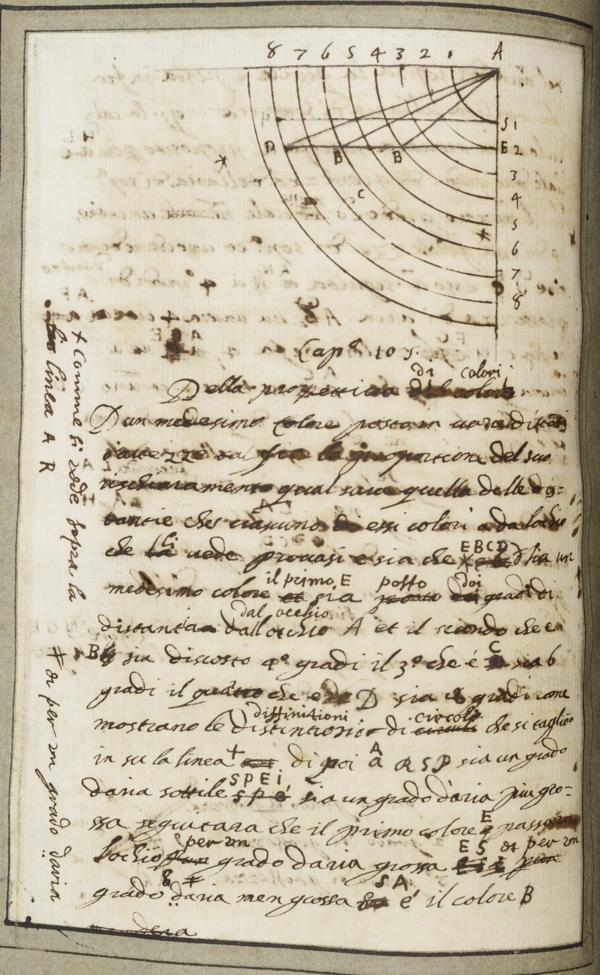 8 7 6 5 4 3 2 1 A
S 1
D B B E 2
3
C 4
5
6
7
8
Cap.º 10 5.
di colori
Della prospettiva
D un medesimo colore posto in varie distanze
sia la proportione del suo
rischiaramento qual saia quella delle dis-
tantie che ciascuno di essi colori a da lochio
che li vede provasi e sia che EBCD sia un
medesimo colore il primo E sia posto doi gradi di
distantia dal occhio A et il secondo che e
B sia discosto 4º gradi il 3º che é C sia 6
gradi il che e D sia 8 gradi come
mostrano le diffinitioni di circolo che si taglino
in su la linea + di poi A R S P sia un grado
daria sottile S P E i sia un grado daria piu gro-
ssa seguitara che il primo colore E passara
lochio per un grado daria grossa E S et per un
grado daria men grossa S A é il colore B
+ Comme si vede sopra la
linea A R
+ et per un grado daria